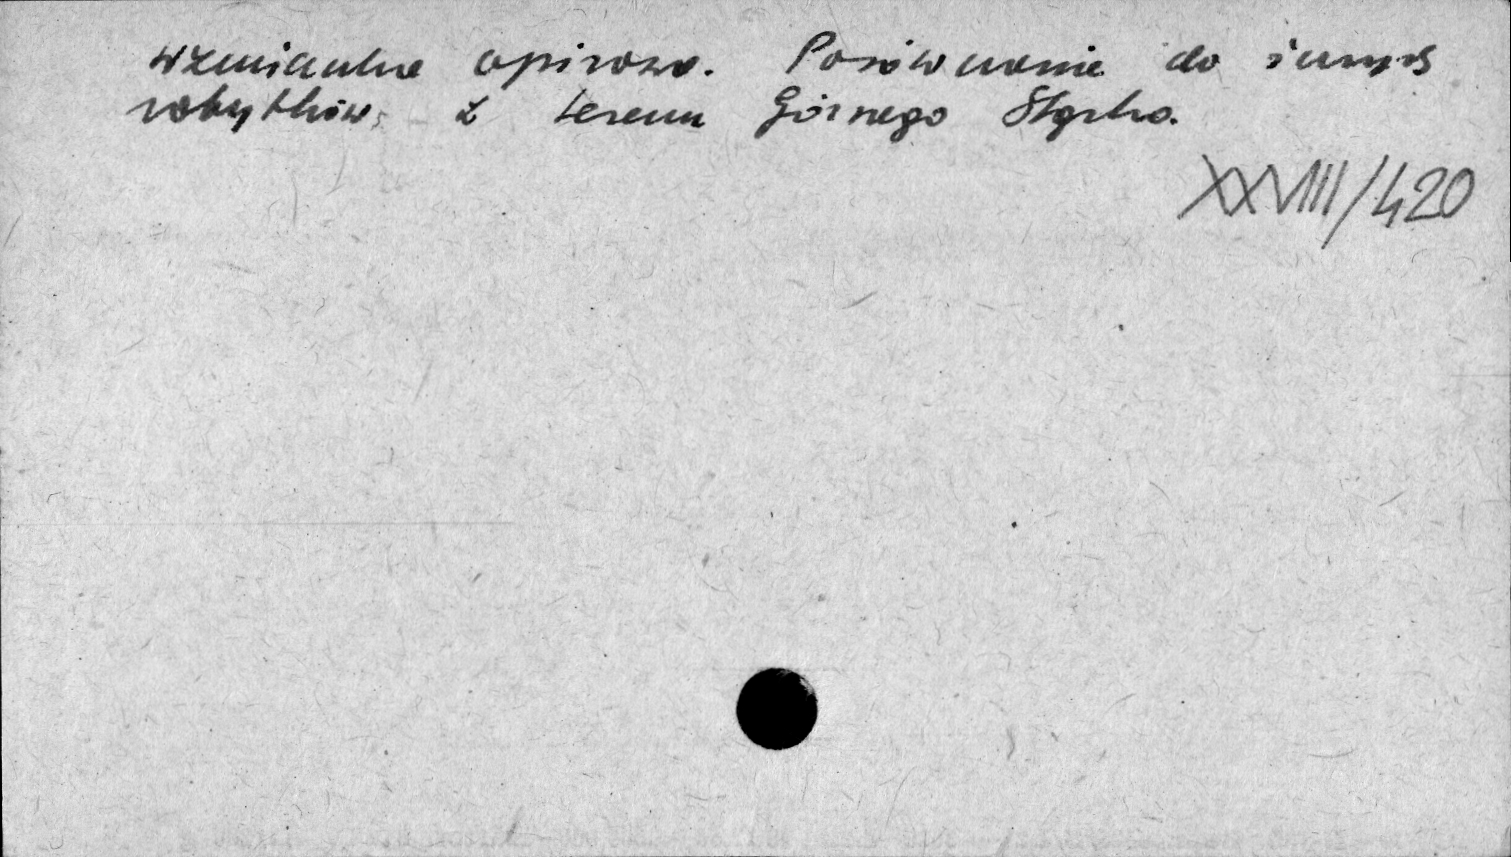 wzmianka opisowa. Porównanie do innych
zabytków z terenu Górnego Śląska.
XXVIII/420